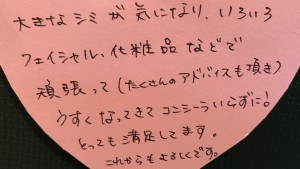 大きなシミが気になり、いろいろ
フェイシャル、化粧品などで
頑張って(たくさんのアドバイスも頂き)
うすくなってきてコンシーラいらずに!
とっても満足してます。
これからもよろしくです。